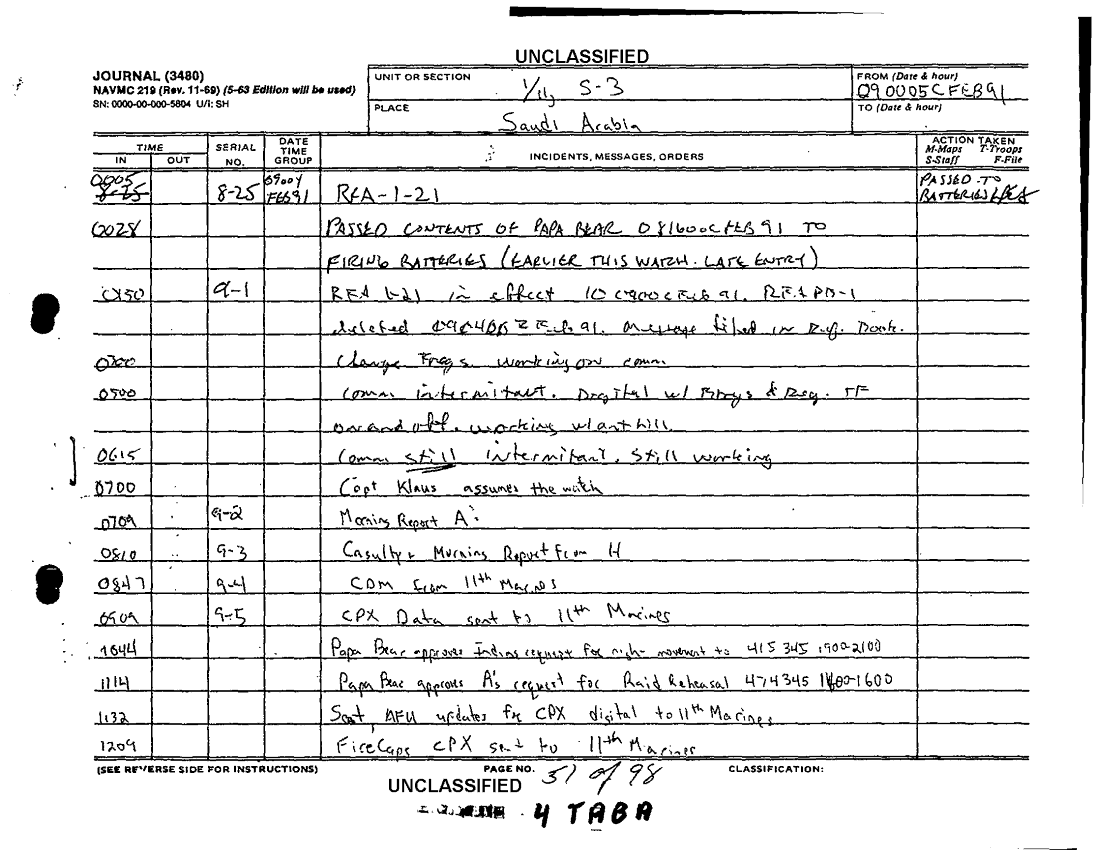 UNCLASSIFIED
JOURNAL (3480)
NAVMC 219 (Rev. 11-69) (5-63 Edition will be used)
SN: 0000-00-000-5804 U/I: SH
UNIT OR SECTION
1/11, S-3
PLACE
Saudi Arabia
FROM (Date & hour)
090005CFEB91
TO (Date & hour)
TIME
IN OUT
SERIAL NO.
DATE TIME GROUP
INCIDENTS, MESSAGES, ORDERS
ACTION TAKEN
M-Maps T-Troops
S-Staff F-File
0005 8-25 FEB91 RFA-1-21 PASSED TO
BATTERIES
0028 PASSED CONTENTS OF PAPA BEAR 081600CFEB91 TO
FIRING BATTERIES (EARLIER THIS WATCH. LATE ENTRY)
0150 9-1 RFA 1-21 in effect
deleted message filed in Book.
Change Freqs. working on comm.
0500 Comm intermitant. Digital w/ Btrys & Reg.
on and off. working w/
0615 Comm still intermitant. Still working
0700 Capt Klaus assumes the watch
0709 9-2 Morning Report A.
0810 9-3 Casulty & Morning Report from H
0847 9-4 COM from 11th Marines
0909 9-5 CPX Data sent to 11th Marines
1044 Papa Bear approves request for night movement to 415 345 1900-2100
1114 Papa Bear approves A's request for Raid Rehearsal 474345 1400-1600
1132 Sent AFU updates for CPX digital to 11th Marines
1209 FireCaps CPX sent to 11th Marines
(SEE REVERSE SIDE FOR INSTRUCTIONS)
PAGE NO. 51 of 98
CLASSIFICATION:
UNCLASSIFIED
4 TABA